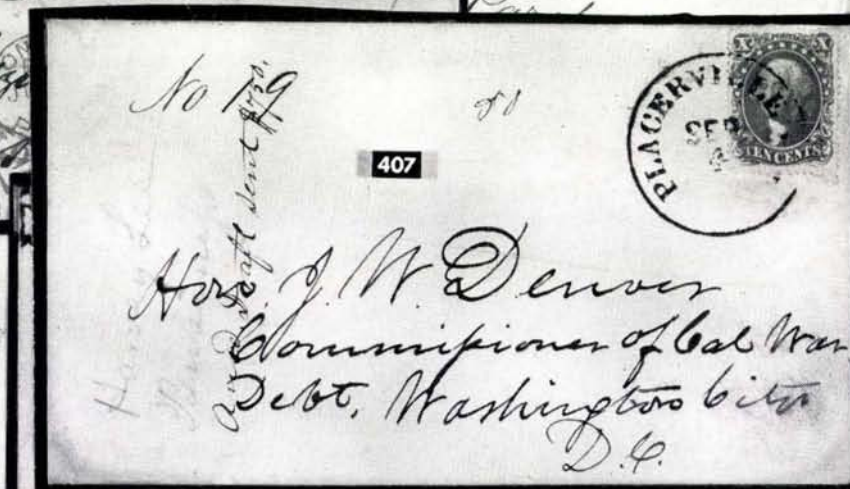 No 179
407
PLACERVILLE
SEP
4
X X
TEN CENTS
draft sent
Hon. J. W. Denver
Commissioner of Cal War
Debt, Washington City
D.C.